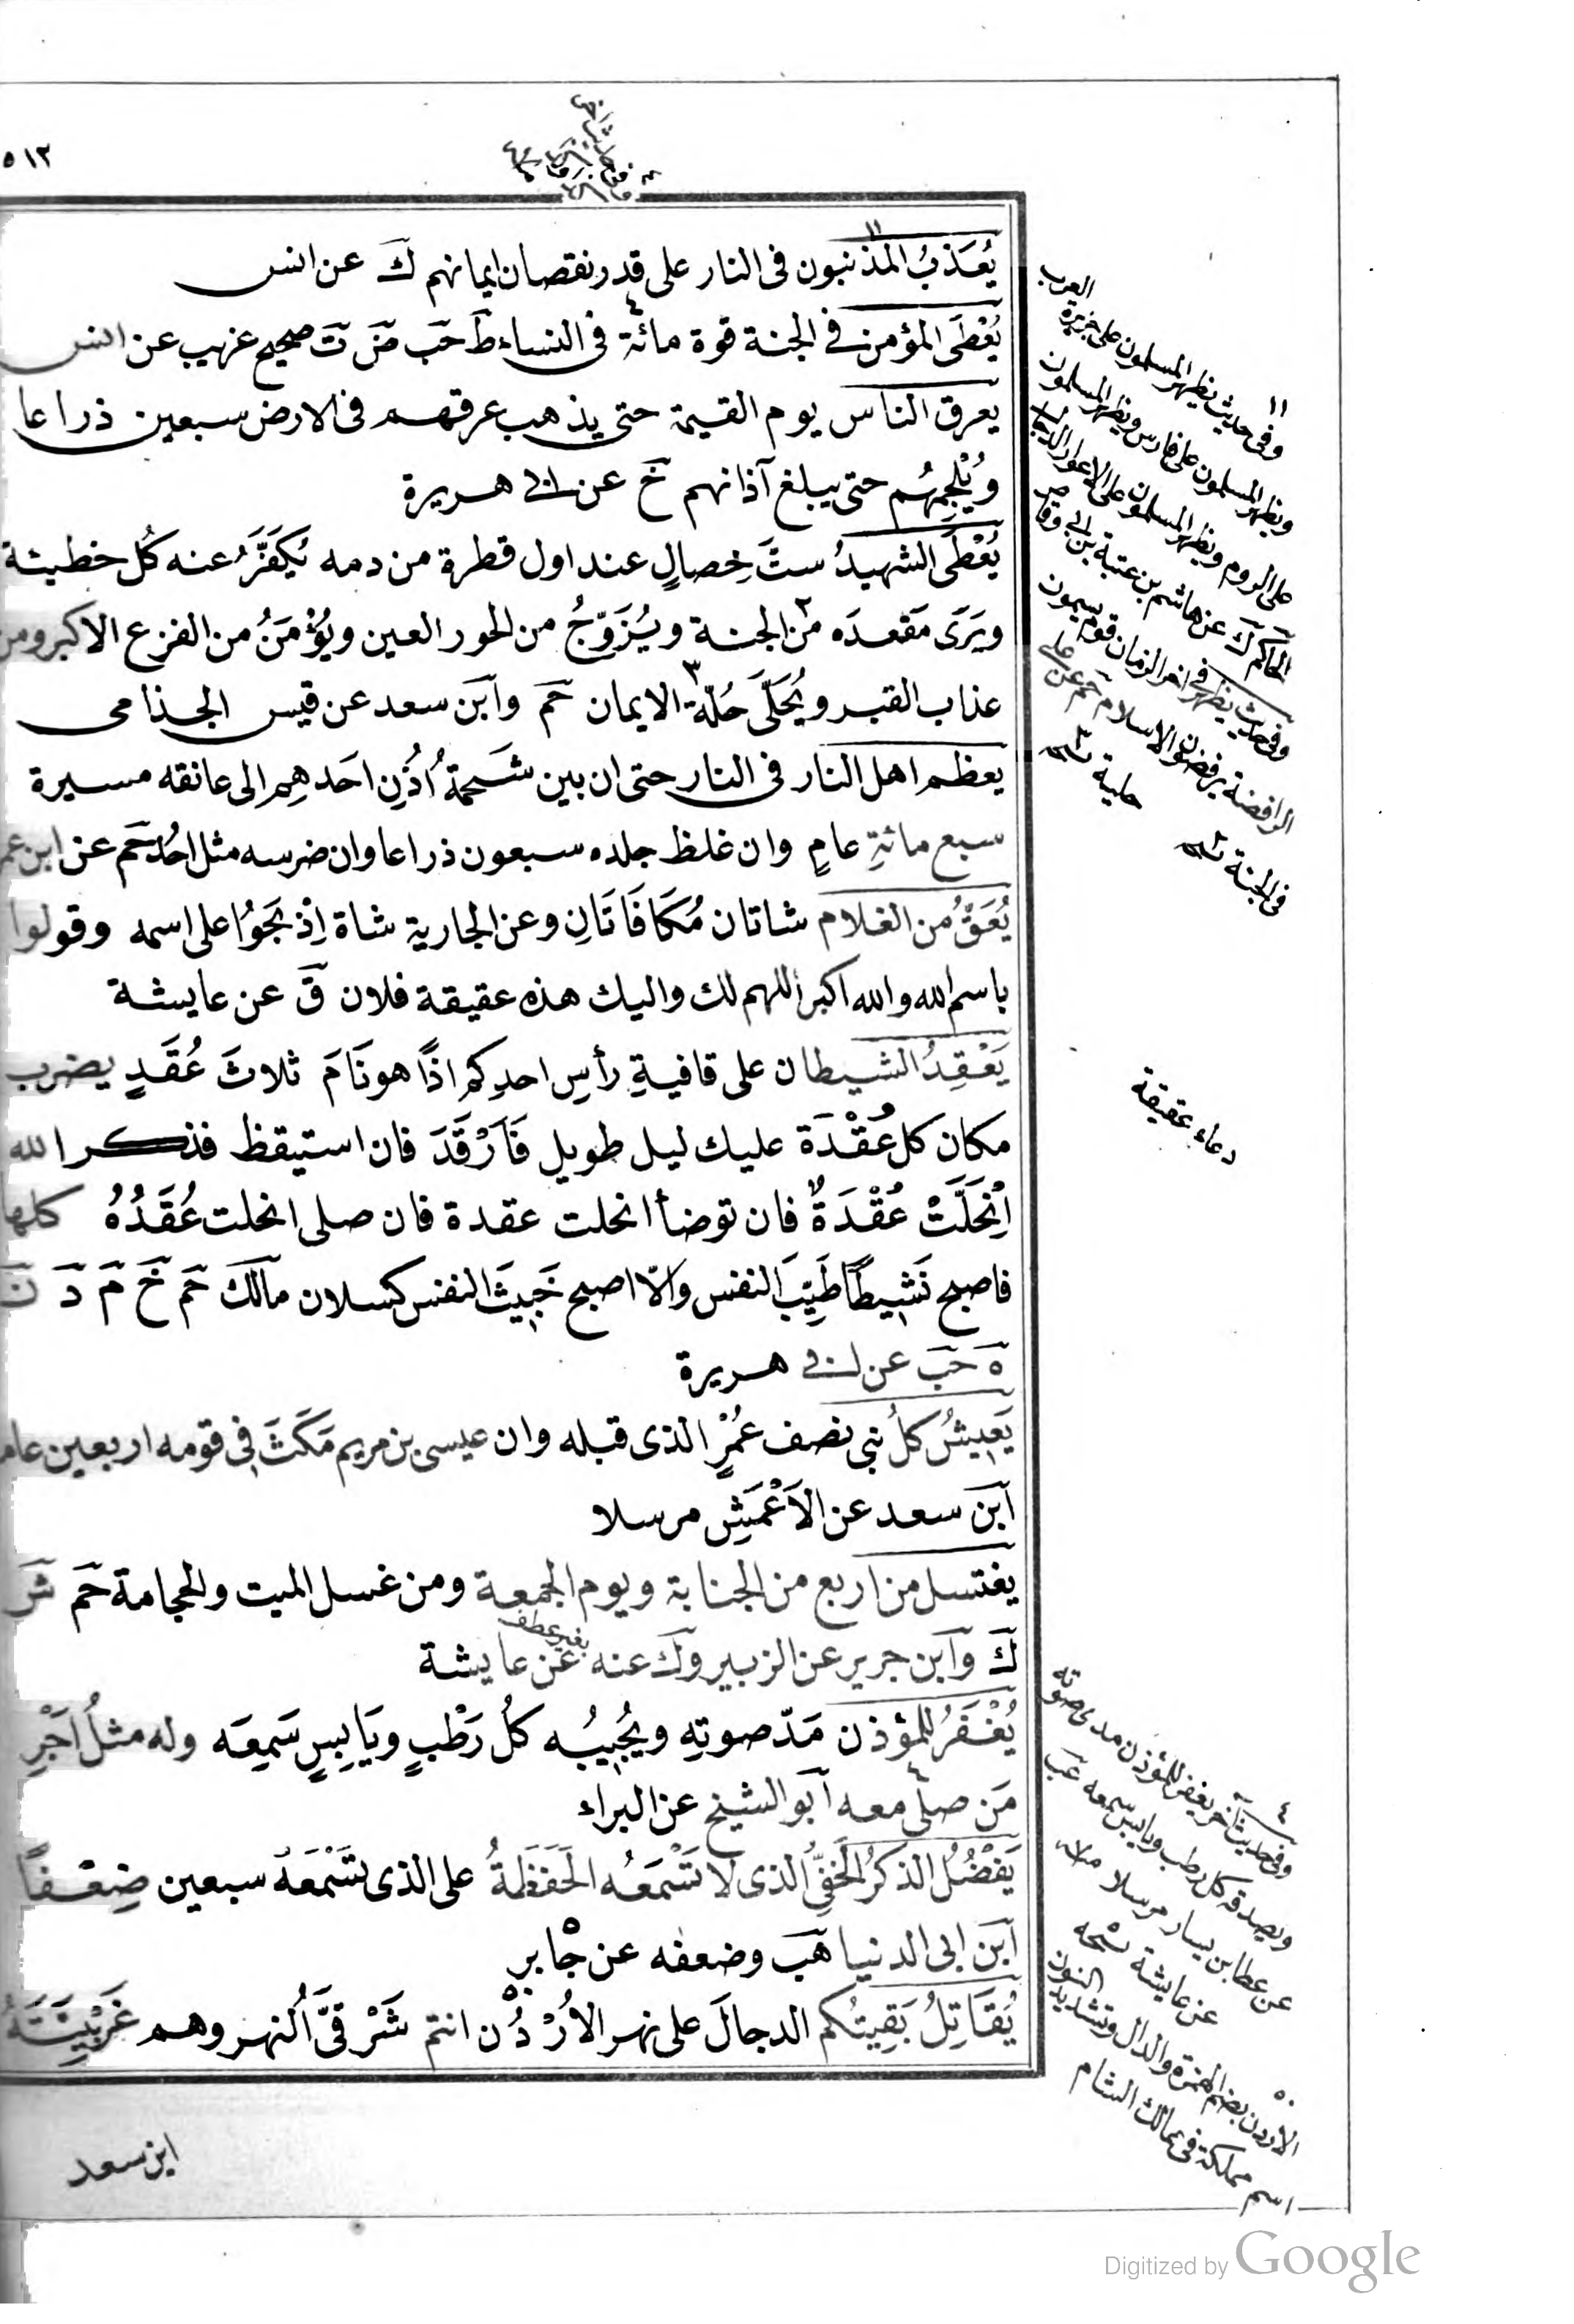 ٥١٢
يُعَذبُ المذنبون فى النار على قدر نقصان ايمانهم كَ عن انس
يُعْطَى المؤمن فى الجنة قوة مائة فى النساء طَ حَبَ ضَ تَ صحيح غريب عن انس
يعرق الناس يوم القيمة حتى يذهب عرقهم فى الارض سبعين ذراعا
ويُلْجِمُهُم حتى يبلغ آذانهم خَ عن ابى هريرة
يُعْطَى الشهيدُ ستَّ خِصالٍ عند اول قطرة من دمه يُكَفَّرُ عنه كُل خطيئة
ويَرَى مَقعدَه من الجنة ويُزَوّجُ من الحور العين ويُؤْمَنُ من الفزع الاكبر ومن
عذاب القبر ويُحَلَّى حُلّةَ الايمان حَمَ وآبن سعد عن قيس الجذامى
يعظم اهل النار فى النار حتى ان بين شَحمةِ اُذُنِ احَدهِم الى عاتقه مسيرة
سبع مائةِ عامٍ وان غلظ جلده سبعون ذراعا وان ضرسه مثل احُد حَم عن ابن عم
يُعَقُّ من الغلام شاتان مُكَافَاتَانِ وعن الجارية شاة اِذْبَحُوا على اسمه وقولوا
باسم الله والله اكبر اللهم لك واليك هذه عقيقة فلان قَ عن عايشة
يَعْقِدُ الشيطان على قافيةِ رأسِ احدِكم اذَا هو نَامَ ثلاثَ عُقَدٍ يضرب
مكان كل عُقْدَة عليك ليل طويل فَارْقَدَ فان استيقظ فذكر الله
اِنْحَلَّتْ عُقْدَةٌ فان توضأ انحلت عقدة فان صلى انحلت عُقَدُهُ كلها
فاصبح نَشِيطًا طَيِّبَ النفس والّا اصبح خَبِيثَ النفس كسلان مالَك حَم خَ مَ دَ نَ
هَ حَبَ عن ابى هريرة
يَعِيشُ كلُ نبى نصف عُمْرِ الذى قبله وان عيسى بن مريم مَكَثَ فى قومه اربعين عام
آبن سعد عن الاَعْمَشِ مرسلا
يغتسل من اربع من الجنابة ويوم الجمعة ومن غسل الميت والحجامة حَم
كَ وآبن جرير عن الزبير وكَ عنه عن عايشة
بغير عطف
يُغْفَرُ للمؤذن مَدّ صوتِهِ ويُجِيبُه كلُ رَطْبٍ ويَابِسٍ سَمِعَه وله مثلُ اَجْرِ
مَن صلى معه آبو الشيخ عن البراء
يَفْضُلُ الذكرُ الخَفِىُّ الذى لا تَسْمَعُه الحَفَظَةُ على الذى تَسْمَعَهُ سبعين ضِعْفًا
آبن ابى الدنيا هَبَ وضعفه عن جابرٍ
يُقَاتِلُ بَقِيتُكم الدجالَ على نهر الاُرْدُن انتم شَرْقىَّ اَلنهر وهم غَرْبِيَتَهُ
ابن سعد
١١
وفى حديث يظهر المسلمون على جزيرة العرب
ويظهر المسلمون على فارس ويظهر المسلمون
على الروم ويظهر المسلمون على الاعور الدجال
الحاكم كَ عن هاشم بن عتبة بن ابى وقاص
وفى حديث يظهر فى اخر الزمان قوم يسمون
الرافضة يرفضون الاسلام حَم عن على
حلية
فى الجنة
دعاء عقيقة
٤
وفى حديث آخر يغفر للمؤذن مدى صوته
ويصدقه كل رطب ويابس سمعه عَبَ
عن عطا بن يسار مرسلا
عن عايشة
٥
الاردن بضم الهمزة والدال وتشديد النون
اسم مملكة فى ممالك الشام
Digitized by Google